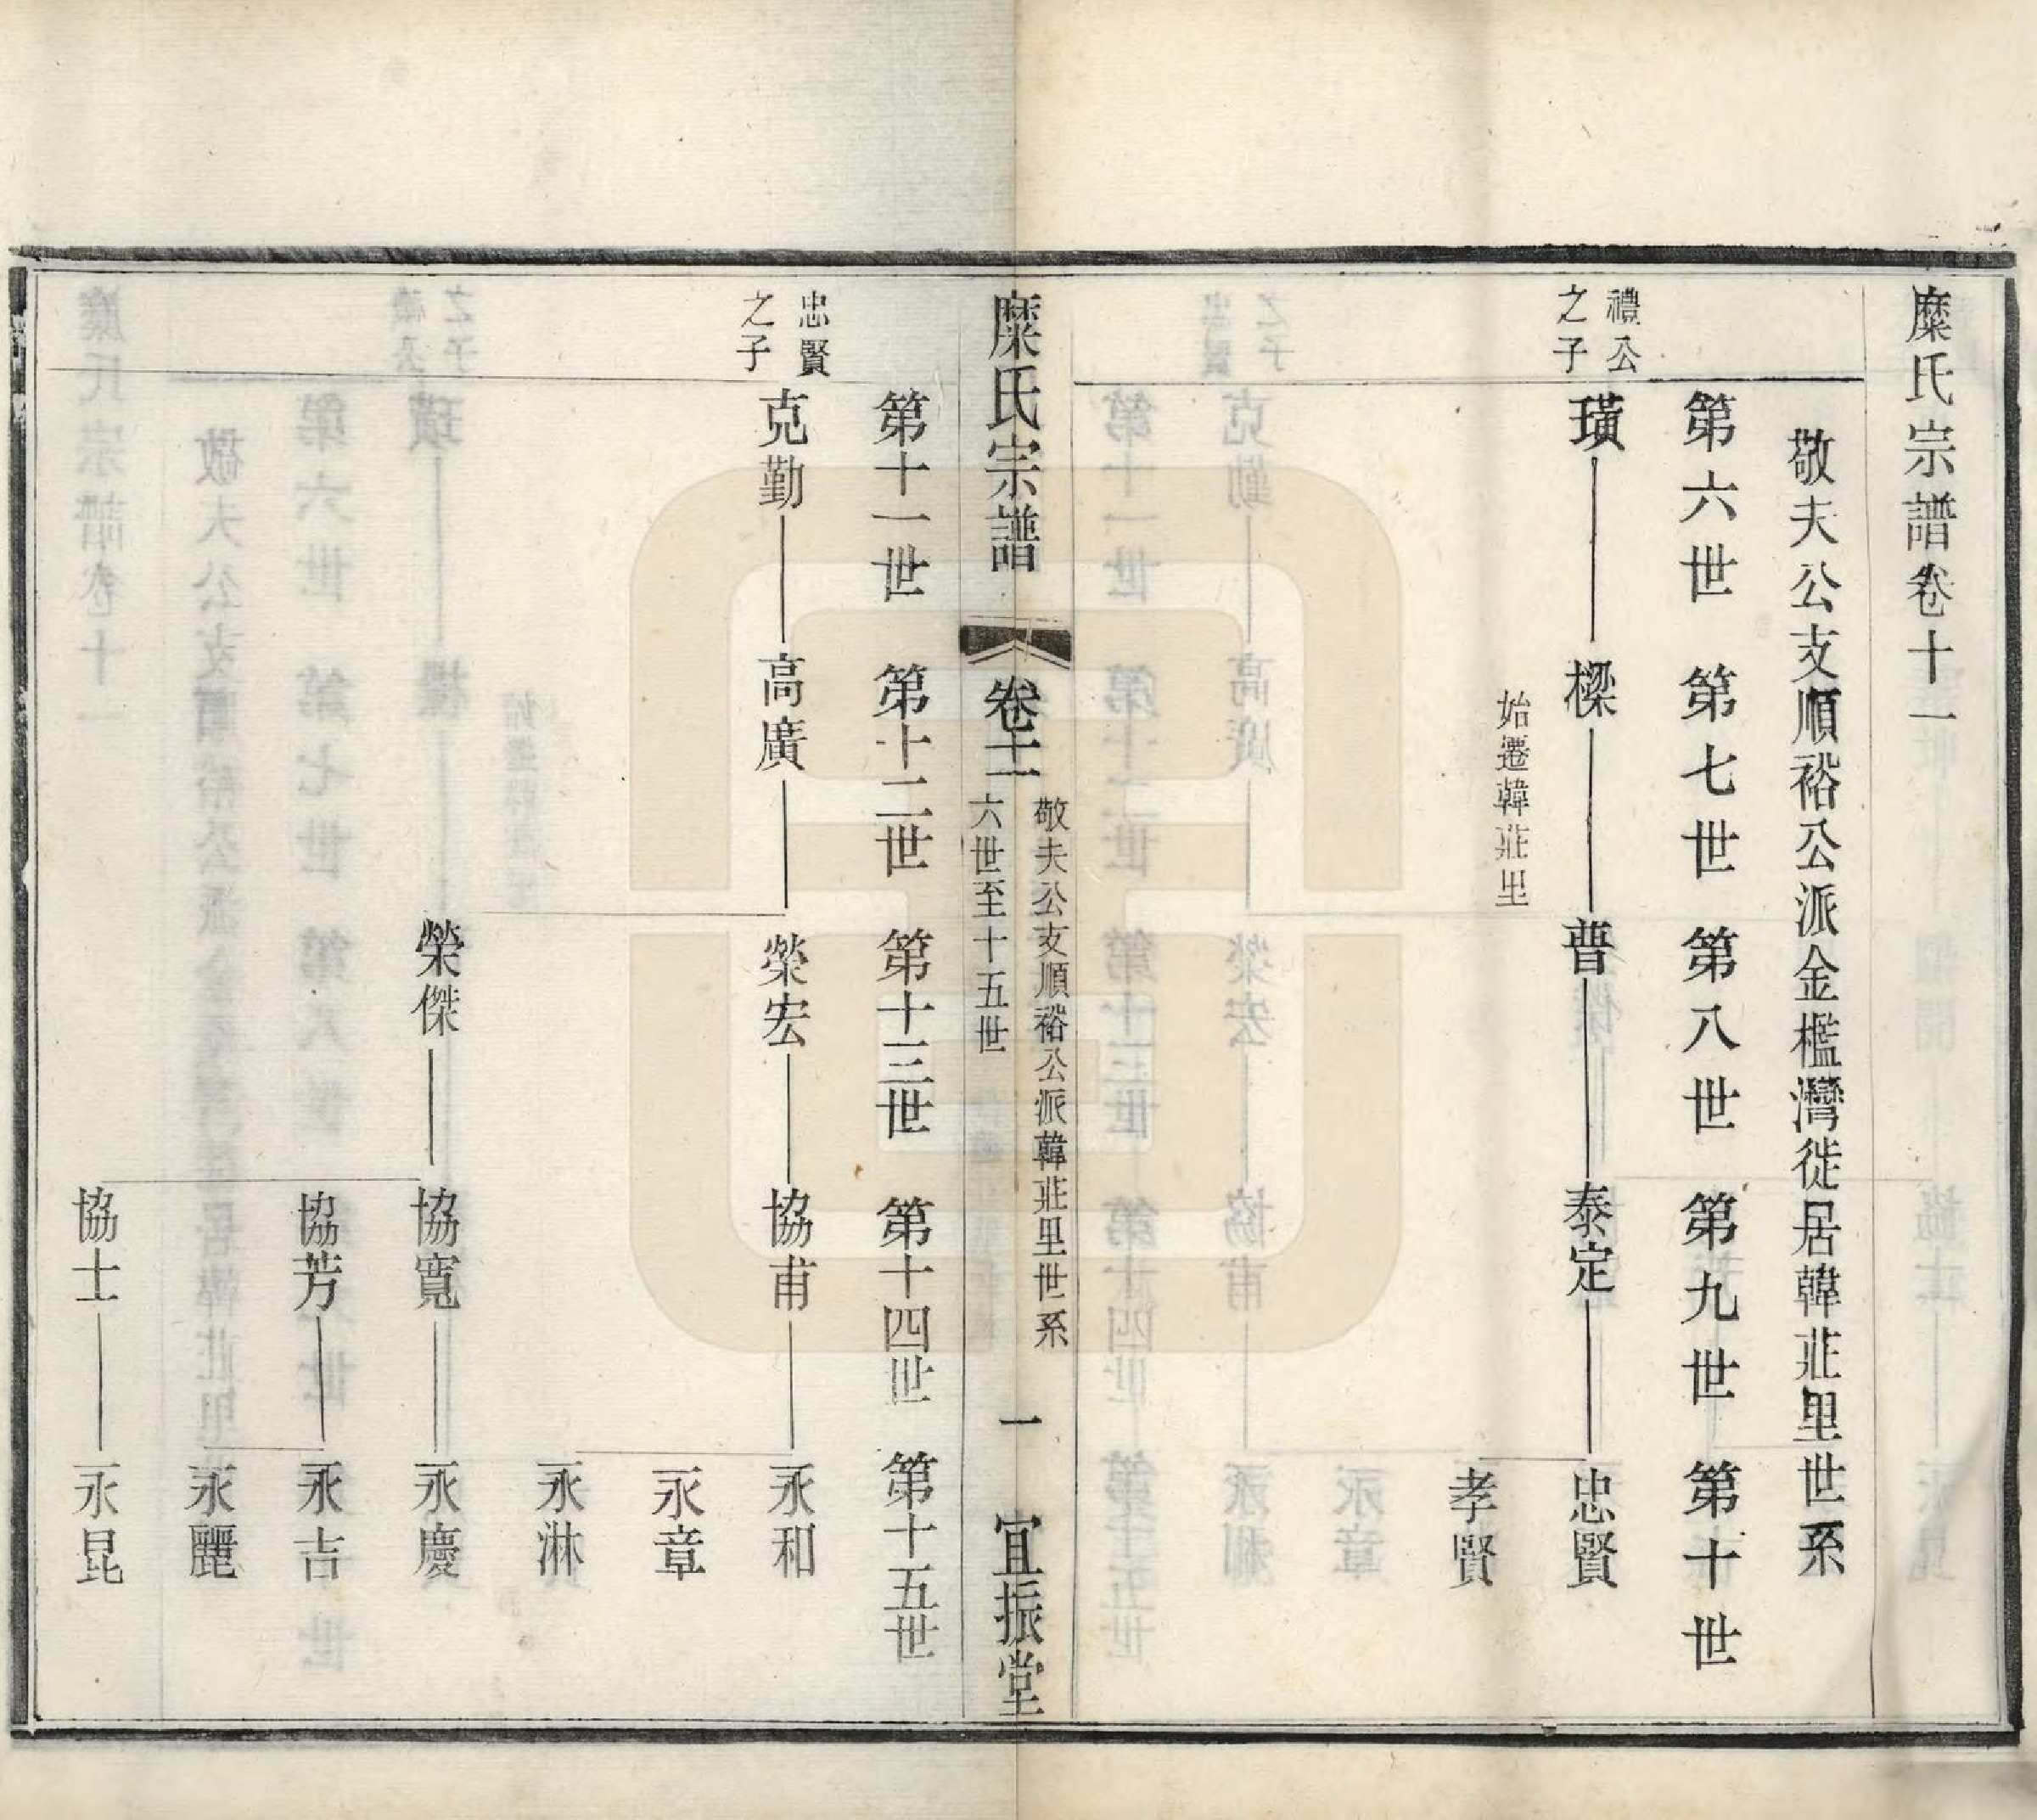 糜氏宗譜卷十一
敬夫公支順裕公派金檻灣徙居韓莊里世系
第六世　第七世　第八世　第九世　第十世
禮公
之子
璜　樑　普　泰定　忠賢
始遷韓莊里
孝賢
糜氏宗譜　卷十一　敬夫公支順裕公派韓莊里世系
六世至十五世　一　宜振堂
第十一世　第十二世　第十三世　第十四世　第十五世
忠賢
之子
克勤　高廣　榮宏　協甫　永和
永章
永淋
榮傑　協寬　永慶
協芳　永吉
永麗
協士　永昆